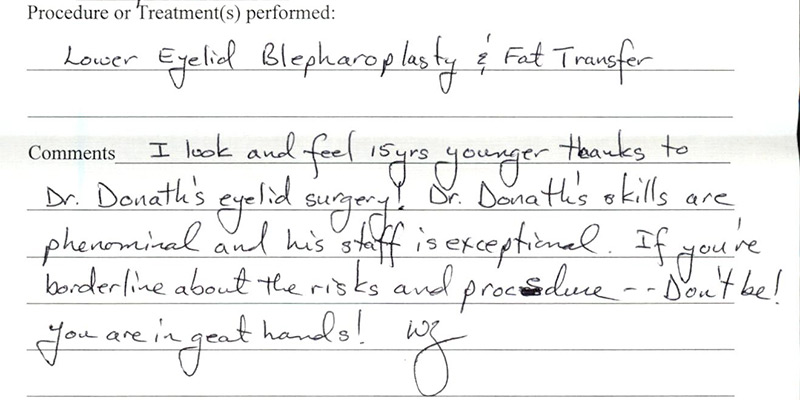 Procedure or Treatment(s) performed:
Lower Eyelid Blepharoplasty & Fat Transfer
Comments I look and feel 15yrs younger thanks to
Dr. Donath's eyelid surgery! Dr. Donath's skills are
phenominal and his staff is exceptional. If you're
borderline about the risks and procedure -- Don't be!
You are in geat hands! WZ